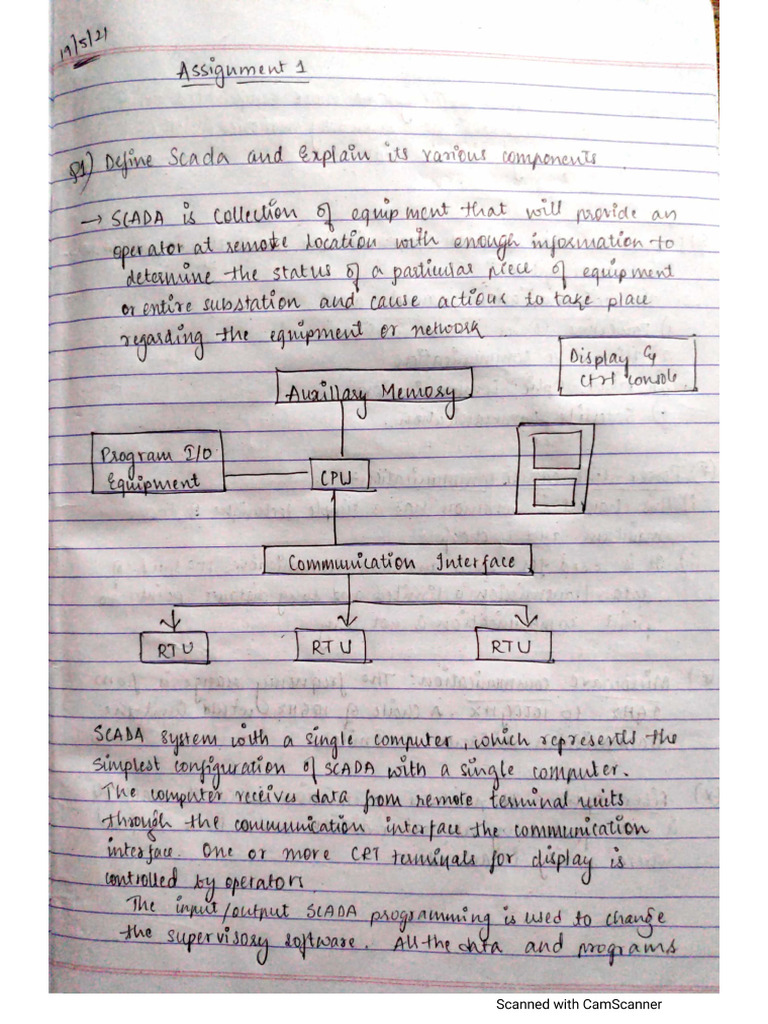 19/5/21
Assignment 1
Q1) Define Scada and Explain its various components
→ SCADA is collection of equipment that will provide an
operator at remote location with enough information to
determine the status of a particular piece of equipment
or entire substation and cause actions to take place
regarding the equipment or network
Display &
ctrl console
Auxillary Memory
Program I/O
Equipment
CPU
Communication Interface
RTU
RTU
RTU
SCADA system with a single computer, which represents the
simplest configuration of SCADA with a single computer.
The computer receives data from remote terminal units
through the communication interface the communication
interface. One or more CRT terminals for display is
controlled by operators.
The input/output SCADA programming is used to change
the supervisory software. All the data and programs
Scanned with CamScanner